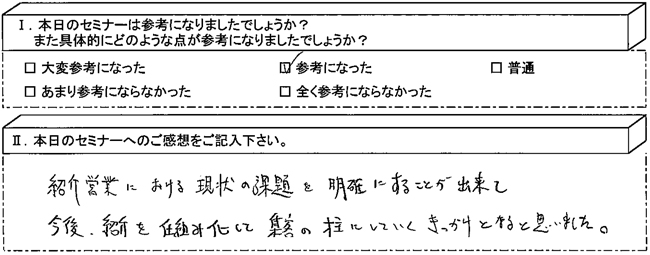 Ⅰ．本日のセミナーは参考になりましたでしょうか？
また具体的にどのような点が参考になりましたでしょうか？
□ 大変参考になった ☑ 参考になった □ 普通
□ あまり参考にならなかった □ 全く参考にならなかった
Ⅱ．本日のセミナーへのご感想をご記入下さい。
紹介営業における現状の課題を明確にすることが出来て
今後、紹介を仕組み化して集客の柱にしていくきっかけとなると思いました。